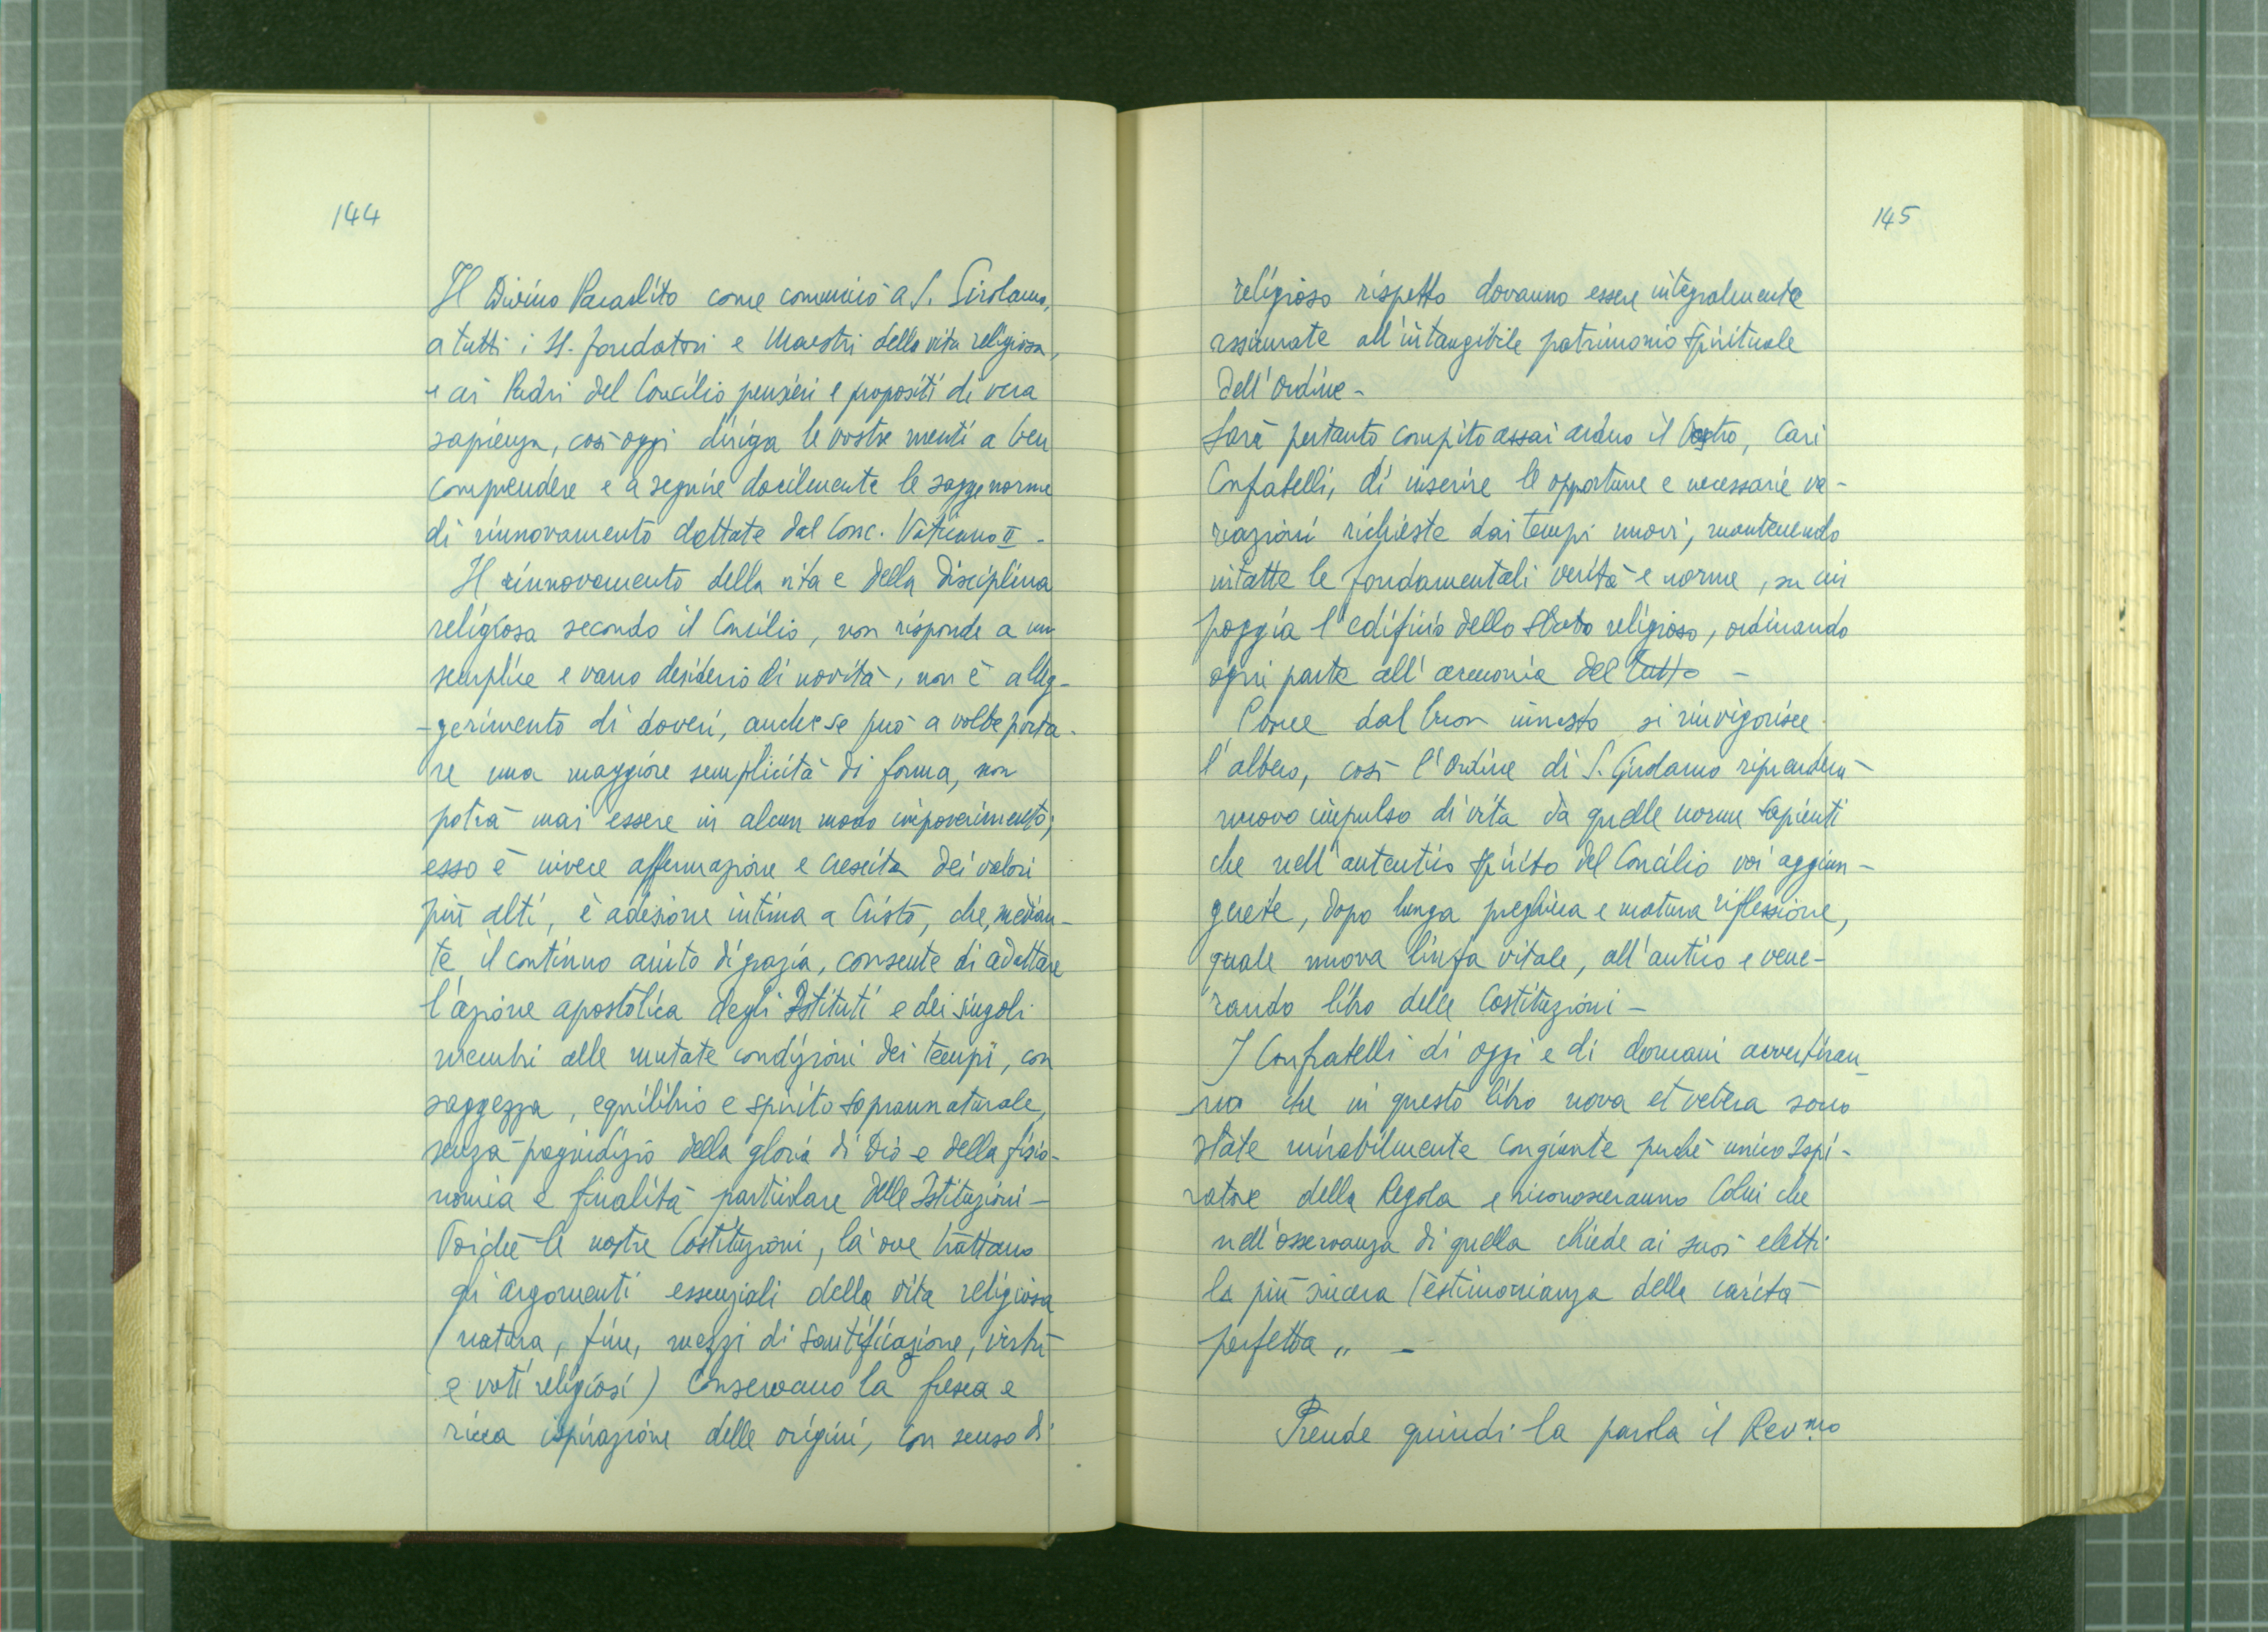 144
Il Divino Paraclito come comunicò a S. Girolamo,
a tutti i SS. fondatori e Maestri della vita religiosa,
e ai Padri del Concilio pensieri e propositi di vera
sapienza, così oggi diriga le vostre menti a ben
comprendere e a seguire docilmente le sagge norme
di rinnovamento dettate dal Conc. Vaticano II -
Il rinnovamento della vita e della disciplina
religiosa secondo il Concilio, non risponde a un
semplice e vano desiderio di novità, non è alleg-
-gerimento di doveri, anche se può a volte porta-
re una maggiore semplicità di forma, non
potrà mai essere in alcun modo impoverimento;
esso è invece affermazione e crescita dei valori
più alti, è adesione intima a Cristo, che, median-
te il continuo aiuto di grazia, consente di adattare
l'azione apostolica degli Istituti e dei singoli
membri alle mutate condizioni dei tempi, con
saggezza, equilibrio e spirito soprannaturale,
senza pregiudizio della gloria di Dio e della fisio-
nomia e finalità particolare delle Istituzioni -
Poiché le nostre Costituzioni, là ove trattano
gli argomenti essenziali della vita religiosa
(natura, fine, mezzi di santificazione, virtù
e voti religiosi) conservano la fresca e
ricca ispirazione delle origini, con senso di
145
religioso rispetto dovranno essere integralmente
riassunte all'intangibile patrimonio spirituale
dell'Ordine -
Sarà pertanto compito assai arduo il Vostro, cari
Confratelli, di inserire le opportune e necessarie va-
riazioni richieste dai tempi nuovi, mantenendo
intatte le fondamentali verità e norme, su cui
poggia l'edificio dello stato religioso, ordinando
ogni parte all'armonia del tutto -
Come dal buon innesto si rinvigorisce
l'albero, così l'Ordine di S. Girolamo riprenderà
nuovo impulso di vita da quelle norme sapienti
che nell'autentico spirito del Concilio voi aggiun-
gerete, dopo lunga preghiera e matura riflessione,
quale nuova linfa vitale, all'antico e vene-
rando libro delle Costituzioni -
I Confratelli di oggi e di domani avvertiran_
_no che in questo libro nova et vetera sono
state mirabilmente congiunte perché unico Ispi-
ratore della Regola e riconosceranno Colui che
nell'osservanza di quella chiede ai suoi eletti
la più sincera testimonianza della carità
perfetta „ -
Prende quindi la parola il Rev.mo